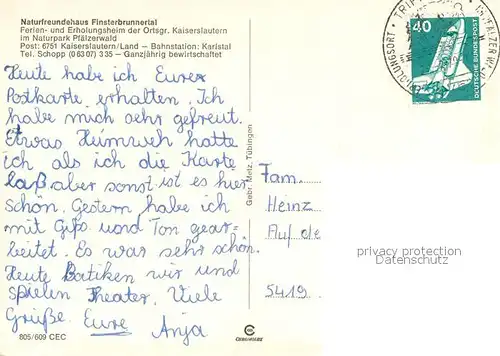 Naturfreundehaus Finsterbrunnertal
Ferien- und Erholungsheim der Ortsgr. Kaiserslautern
im Naturpark Pfälzerwald
Post: 6751 Kaiserslautern/Land — Bahnstation: Karlstal
Tel. Schopp (0 63 07) 3 35 — Ganzjährig bewirtschaftet
Heute habe ich Eurer
Postkarte erhalten. Ich
habe mich sehr gefreut.
Etwas Heimweh hatte
ich als ich die Karte
laß aber sonst ist es hier
schön. Gestern habe ich
mit Gips und Ton gear-
beitet. Es war sehr schön.
Heute Batiken wir und
spielen Theater. Viele
Grüße. Eure Anja
805/609 CEC
Gebr. Metz, Tübingen
CEKOMETZ
40
DEUTSCHE BUNDESPOST
Fam.
Heinz
Auf de
5419
privacy protection
Datenschutz